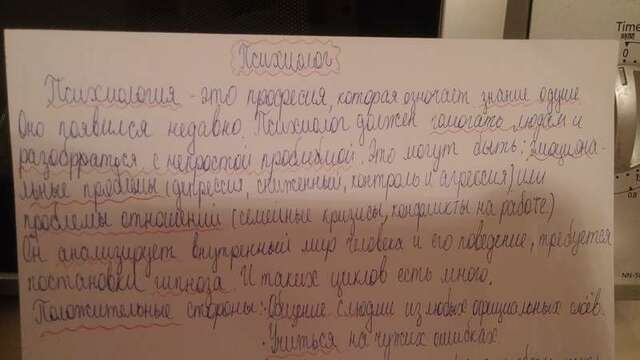 Психолог
Психология - это профессия, которая означает знание о душе
Оно появился недавно. Психолог должен помогать людям и
разобраться с непростой проблемой. Это могут быть: эмоциона-
льные проблемы (депрессия, сниженный, контроль и агрессия) или
проблемы отношений (семейные кризисы, конфликты на работе)
Он анализирует внутренный мир человека и его поведение, требуется
постановки гипноза. И таких циклов есть много.
Положительные стороны: Общение с людми из любых официальных слоёв.
· Учиться на чужих ошибках.
Time
時間
0
NN-S